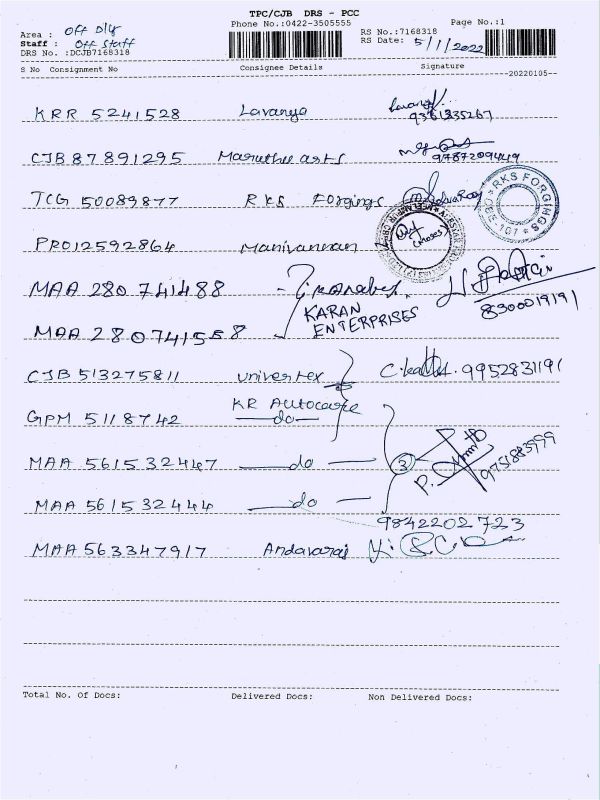 TPC/CJB DRS - PCC
Phone No.:0422-3505555
Page No.:1
Area : Off Dly
Staff : Off Staff
DRS No. :DCJB7168318
RS No.:7168318
RS Date: 5/1/2022
S No Consignment No Consignee Details Signature
--20220105--
KRR 5241528 Lavanya 9361335267
CJB 87891295 Maruthi arts 9787209449
TCG 50089877 RKS Forgings
RKS FORGINGS
CBE-107
PRO12592864 Manivannan
(Moses)
MAA 280741488
KARAN
ENTERPRISES
8300019191
MAA 280741558
CJB 513275811 univertex 9952831191
KR Autocare
GPM 5118742 —do—
MAA 561532447 —do— 3 9751883999
MAA 561532444 —do—
9842202723
MAA 563347917 Andavaraj
Total No. Of Docs: Delivered Docs: Non Delivered Docs: